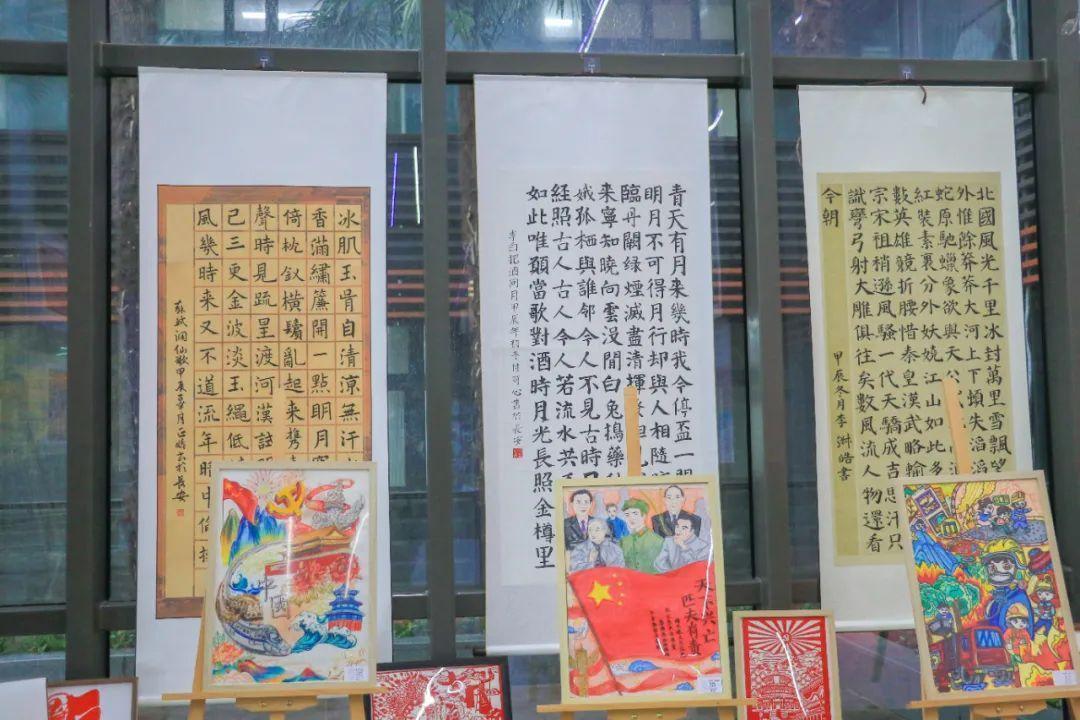 冰肌玉骨自清涼無汗
香滿繡簾開一點明月
倚枕釵橫鬢亂起來攜
聲時見疏星渡河漢試
已三更金波淡玉繩低
風幾時來又不道流年暗中偷換
蘇軾洞仙歌甲辰
月
書於長安
青天有月来幾時我今停盃一問
明月不可得月行却與人相隨
臨丹闕绿煙滅盡清輝發
来寧知曉向雲没閒白兔搗藥
娥孤栖與誰邻今人不見古時月
経照古人古人今人若流水共
如此唯願當歌對酒時月光長照金樽里
李白把酒問月甲辰年初冬
書於長安
北國風光千里冰封萬里雪飄望
外惟餘莽莽大河上下頓失滔
蛇原馳蠟象欲與天公
紅裝素裹分外妖嬈江山如此多
數英雄競折腰惜秦皇漢武略輸
宗宋祖稍遜風騷一代天驕成吉思汗只
識彎弓射大雕俱往矣數風流人物還看
今朝
甲辰冬月李淋皓書
中國
天下兴亡
匹夫有責